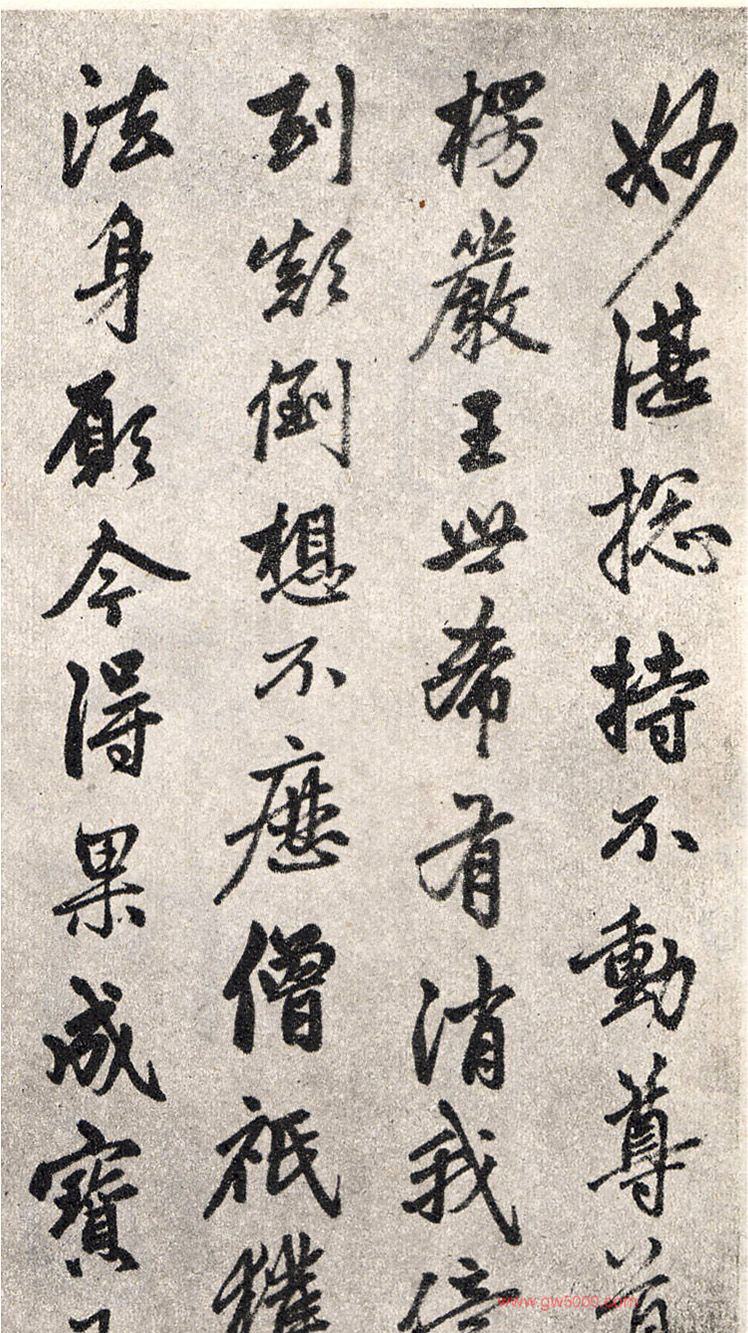 妙湛揔持不動尊首
楞嚴王世希有消我億
刧顛倒想不歷僧祇獲
法身願今得果成寶
www.gw5000.com